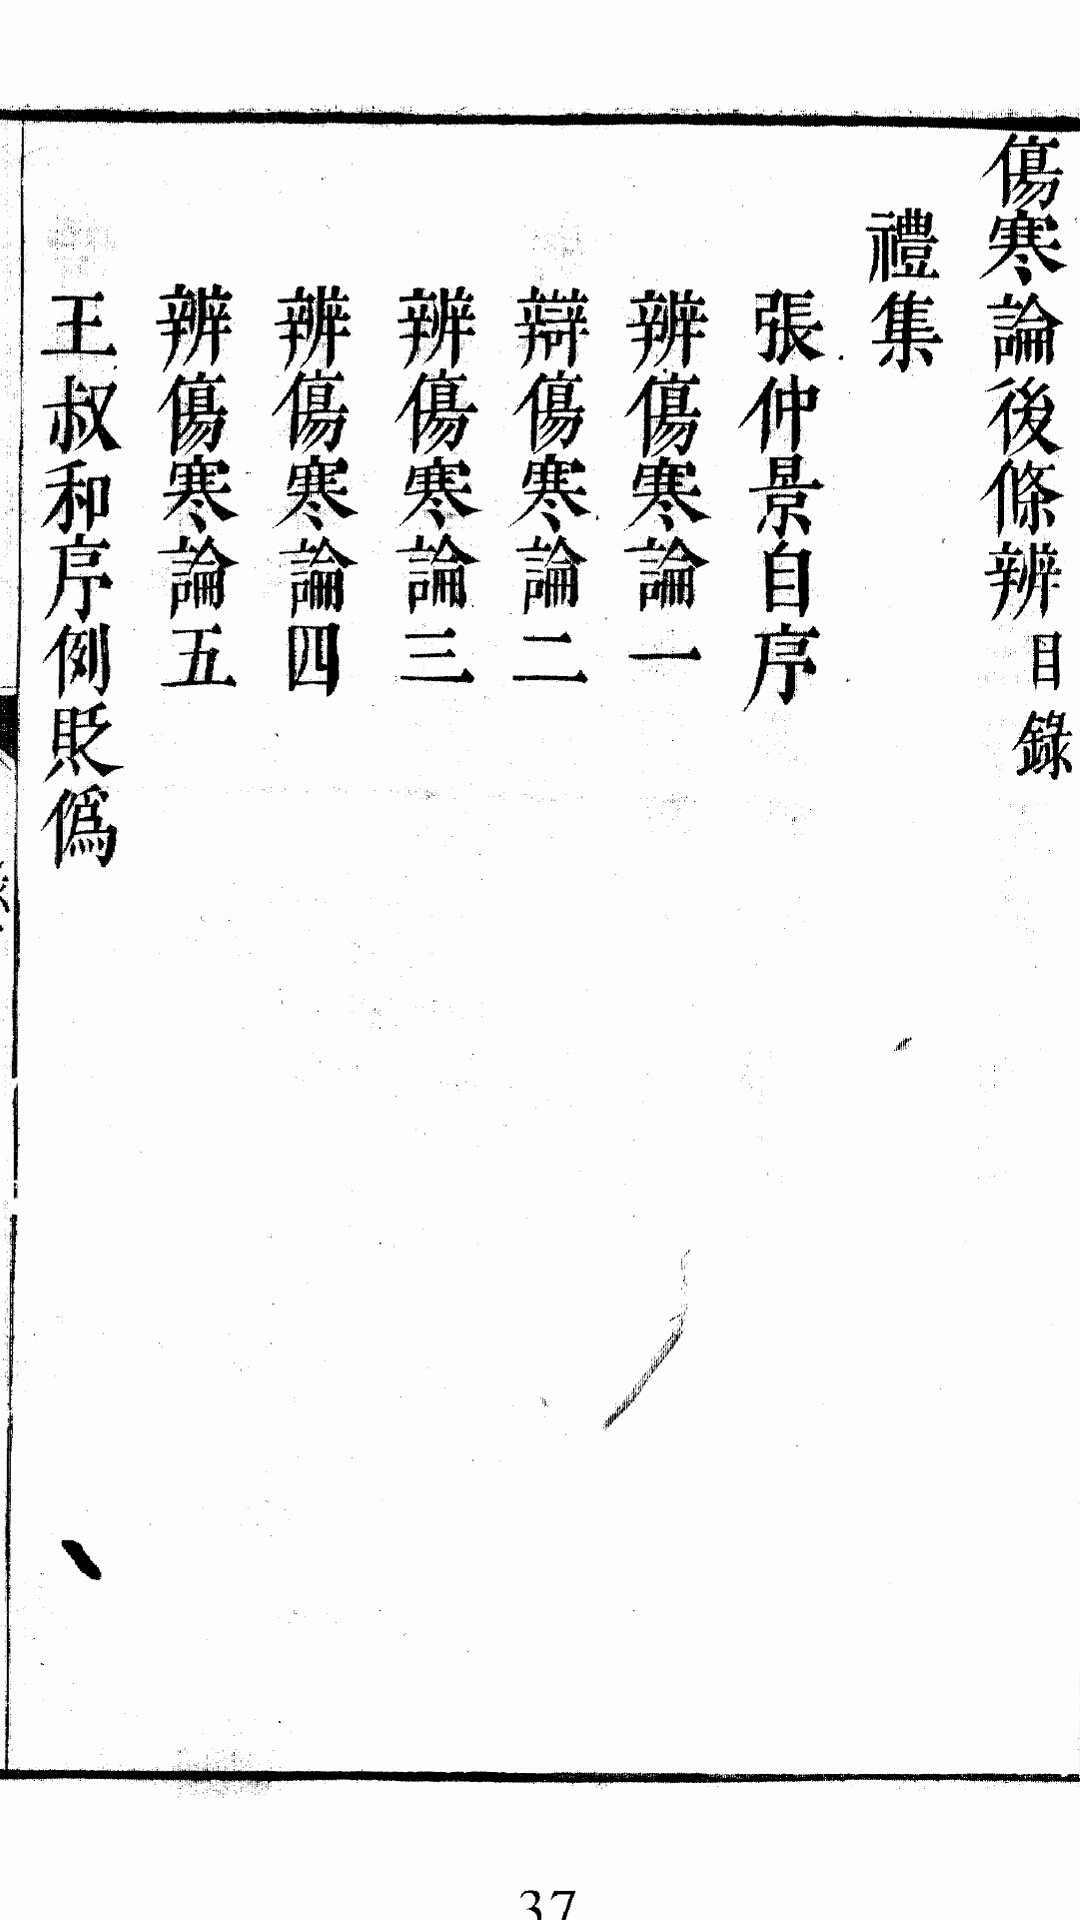 傷寒論後條辨目錄
禮集
張仲景自序
辨傷寒論一
辯傷寒論二
辨傷寒論三
辨傷寒論四
辨傷寒論五
王叔和序例貶偽
37